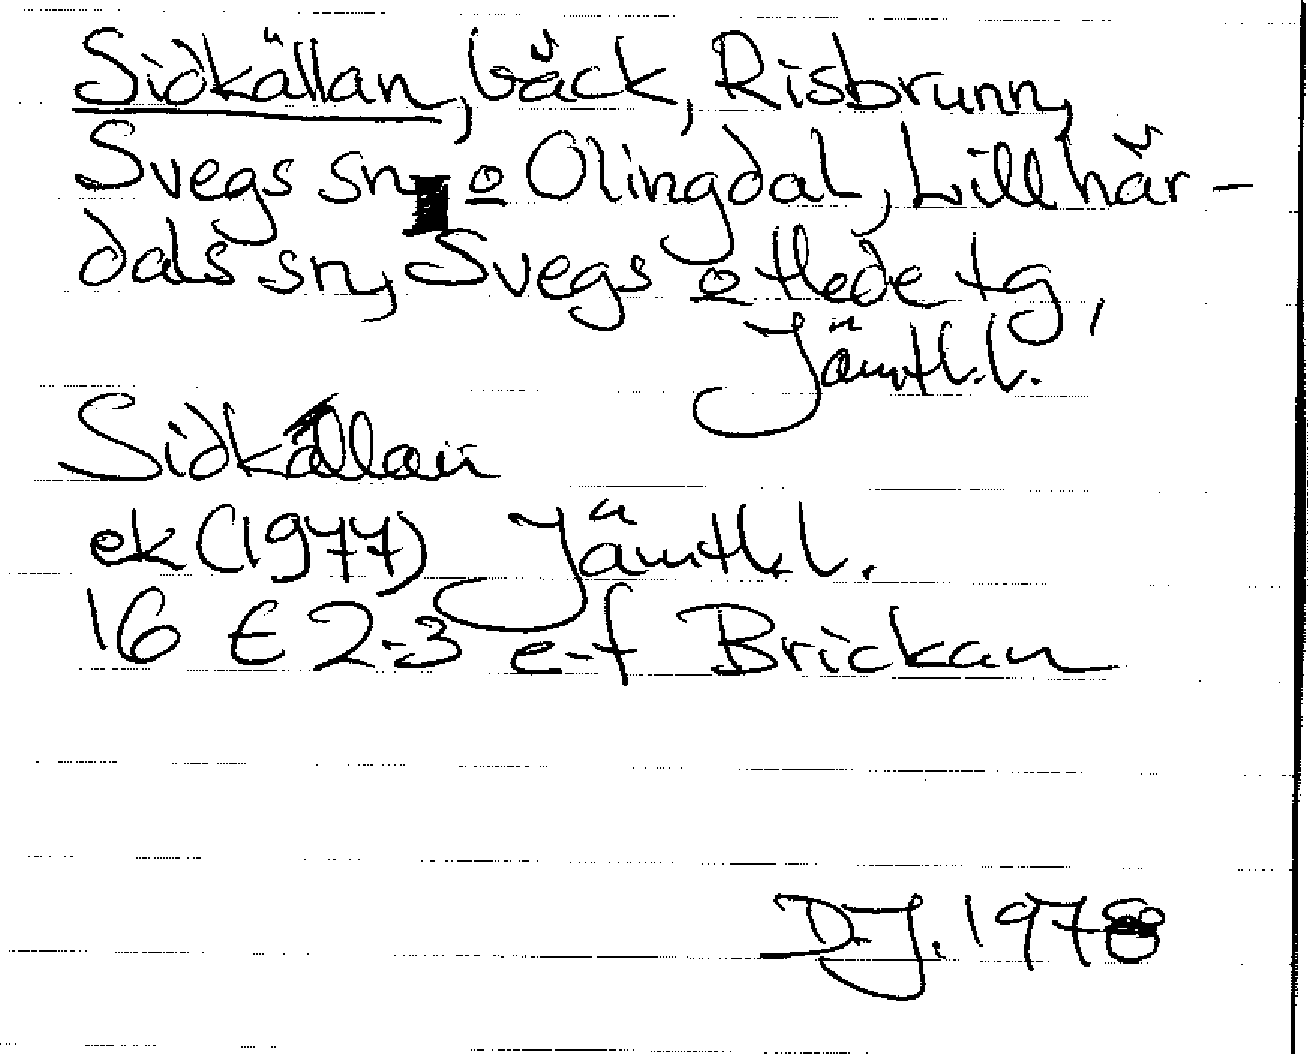 Sidkällan, bäck, Risbrunn,
Svegs sn, o Olingdal, Lillhär-
dals sn, Svegs o Hede tg,
Jämtl.l.
Sidkällan
ek (1977) Jämtl.l.
16 E 2-3 e-f Brickan
D.J. 1978